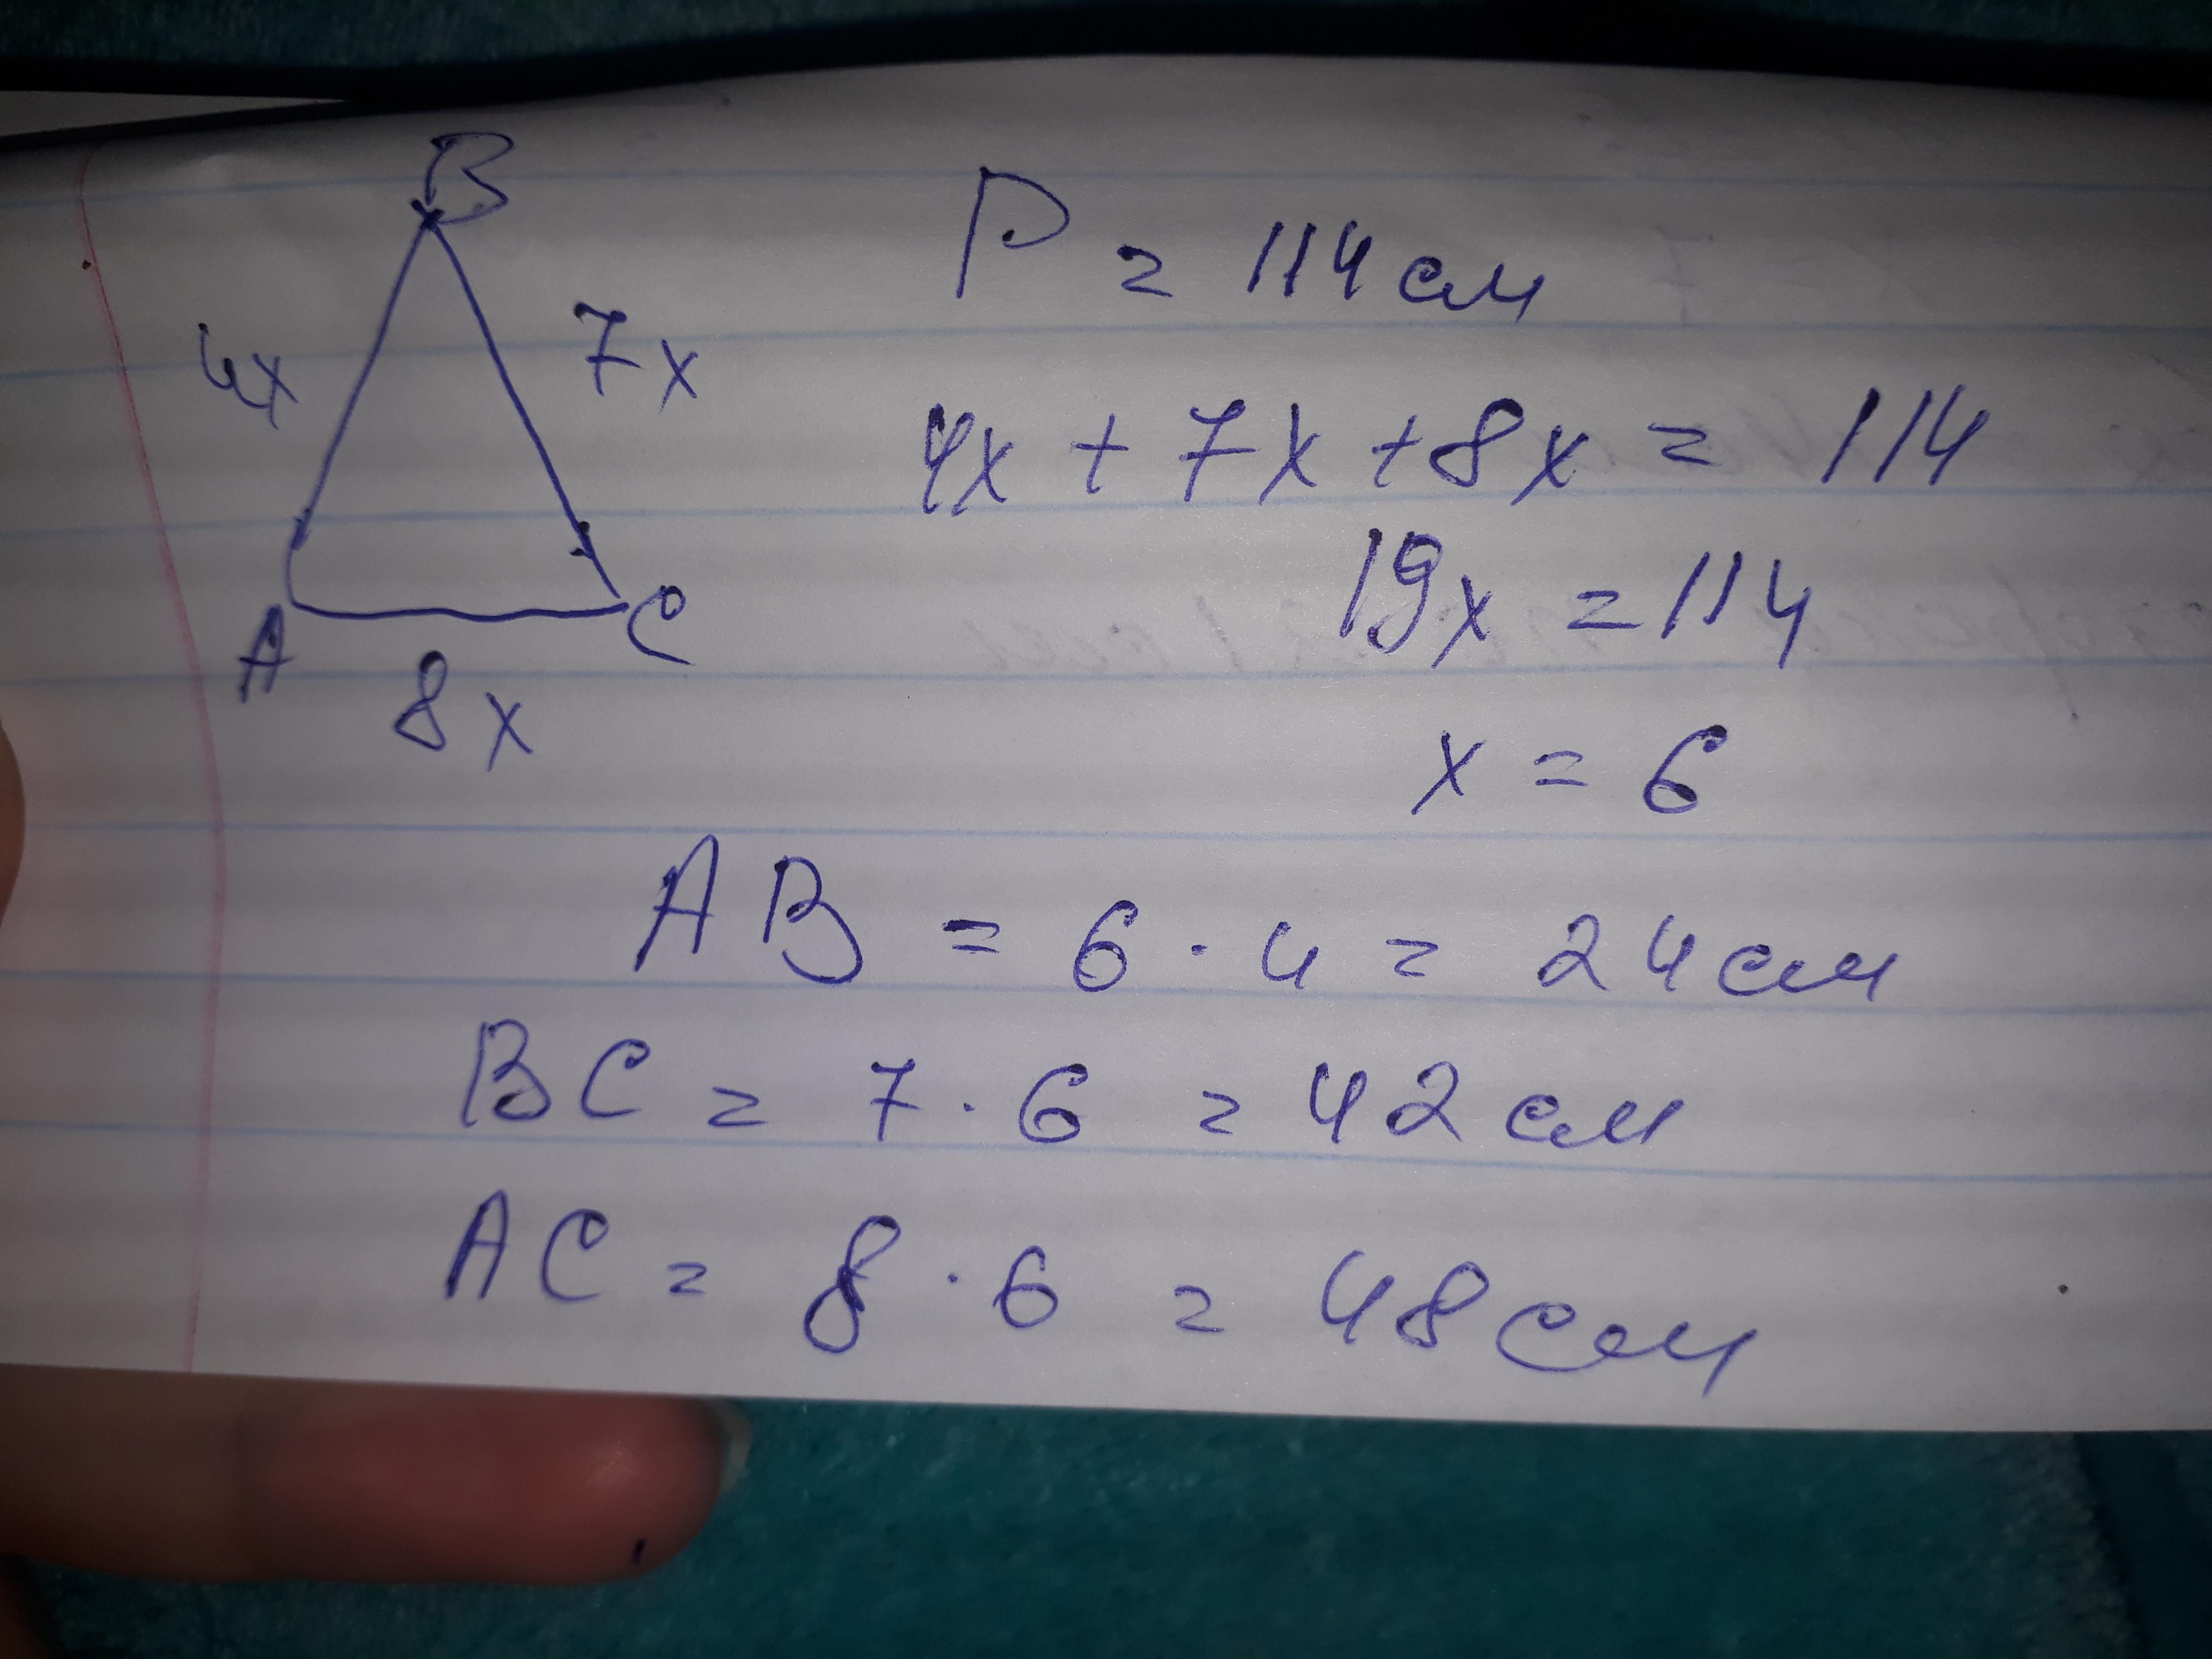 B
P = 114 см
4x
7x
4x + 7x + 8x = 114
19x = 114
A
C
8x
x = 6
AB = 6 · 4 = 24 см
BC = 7 · 6 = 42 см
AC = 8 · 6 = 48 см